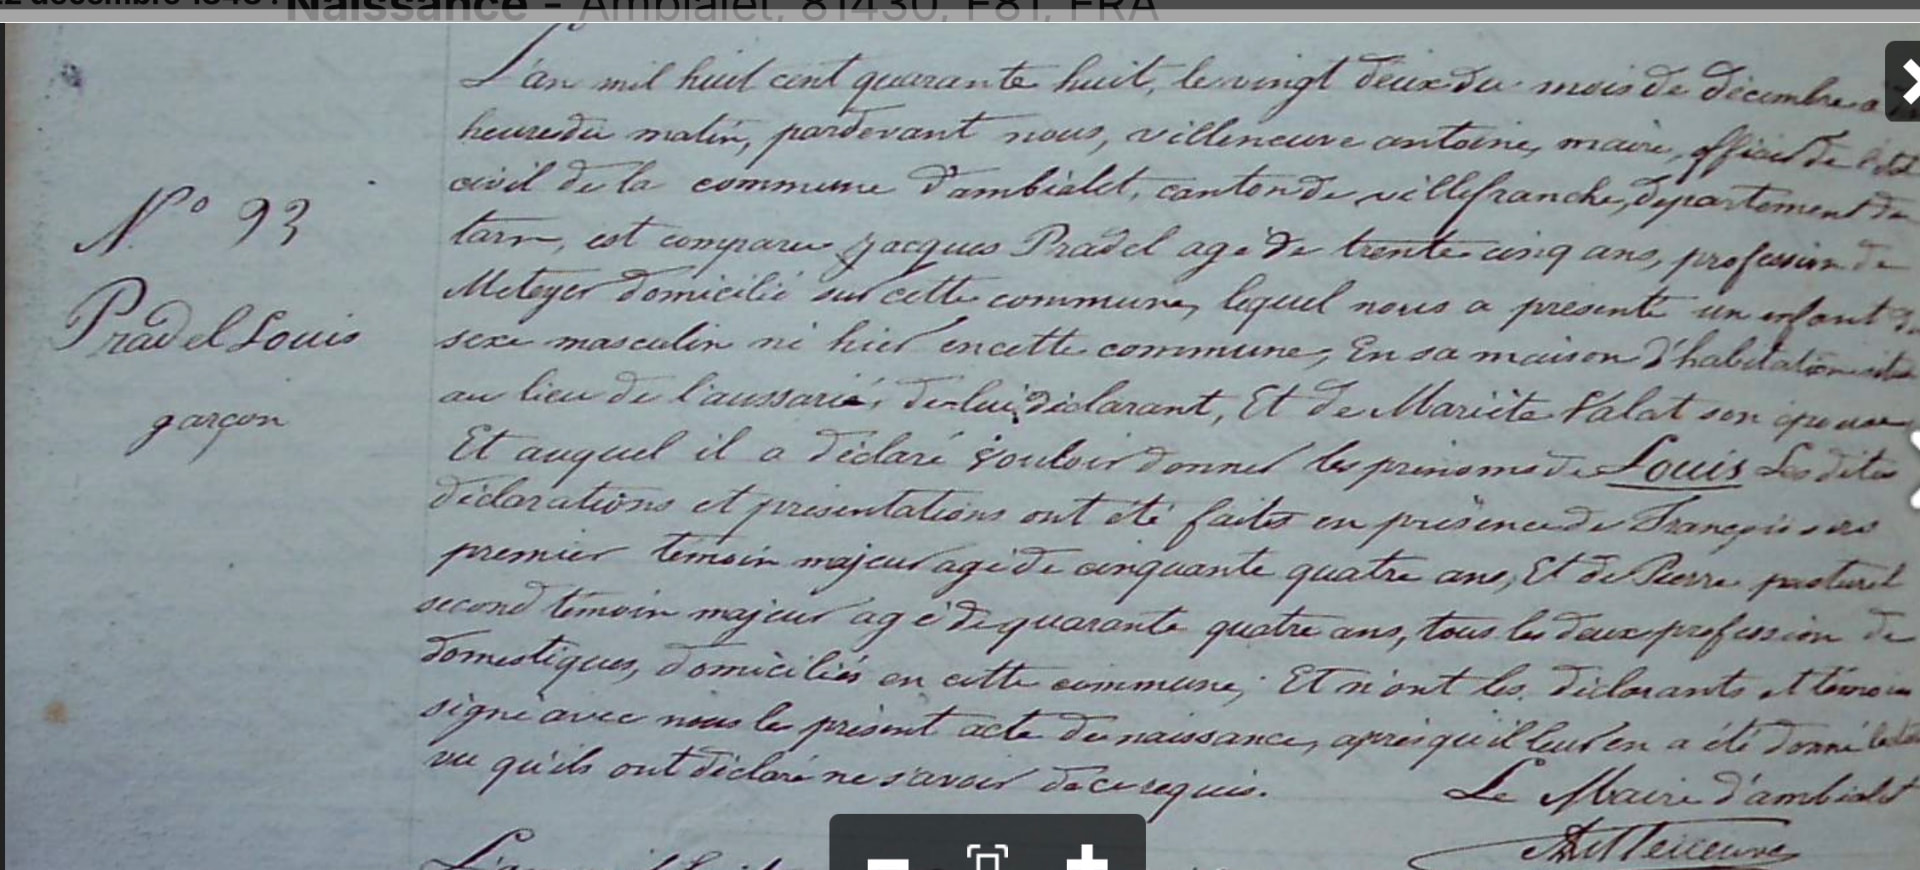 Naissance - Ambialet, 81430, F81, FRA
L'an mil huit cent quarante huit, le vingt deux du mois de Décembre a
heure du matin, pardevant nous, villeneuve antoine, maire, officier de l'état
civil de la commune d'ambialet, canton de villefranche, département du
tarn, est comparu jacques Pradel agé de trente cinq ans, profession de
N° 93
Meteyer domicilié sur cette commune, lequel nous a présenté un enfant du
Pradel Louis
sexe masculin né hier en cette commune, En sa maison d'habitation
garçon
au lieu de l'aussarié, de lui déclarant, Et de Mariète Valat son épouse
Et auquel il a déclaré vouloir donner les prénoms de Louis Les dites
déclarations et présentations ont été faites en présence de François
premier temoin majeur agé de cinquante quatre ans, Et de Pierre pasturel
second témoin majeur agé de quarante quatre ans, tous les deux profession de
domestiques, domiciliés en cette commune; Et n'ont les déclarants et témoin
signé avec nous le présent acte de naissance, après qu'il leur en a été donné
vu qu'ils ont déclaré ne savoir de ce requis.
Le Maire d'ambialet
Villeneuve